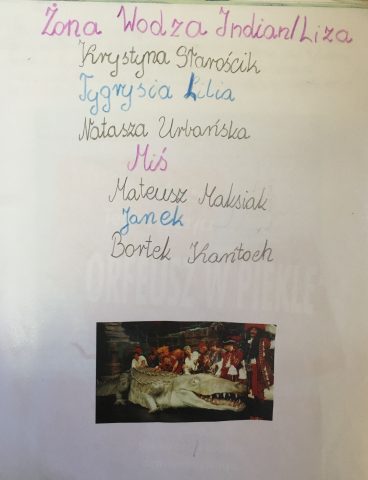 Żona Wodza Indian/Liza
Krystyna Starościk
Tygrysia Lilia
Natasza Urbańska
Miś
Mateusz Maksiak
Janek
Bartek Kantoch